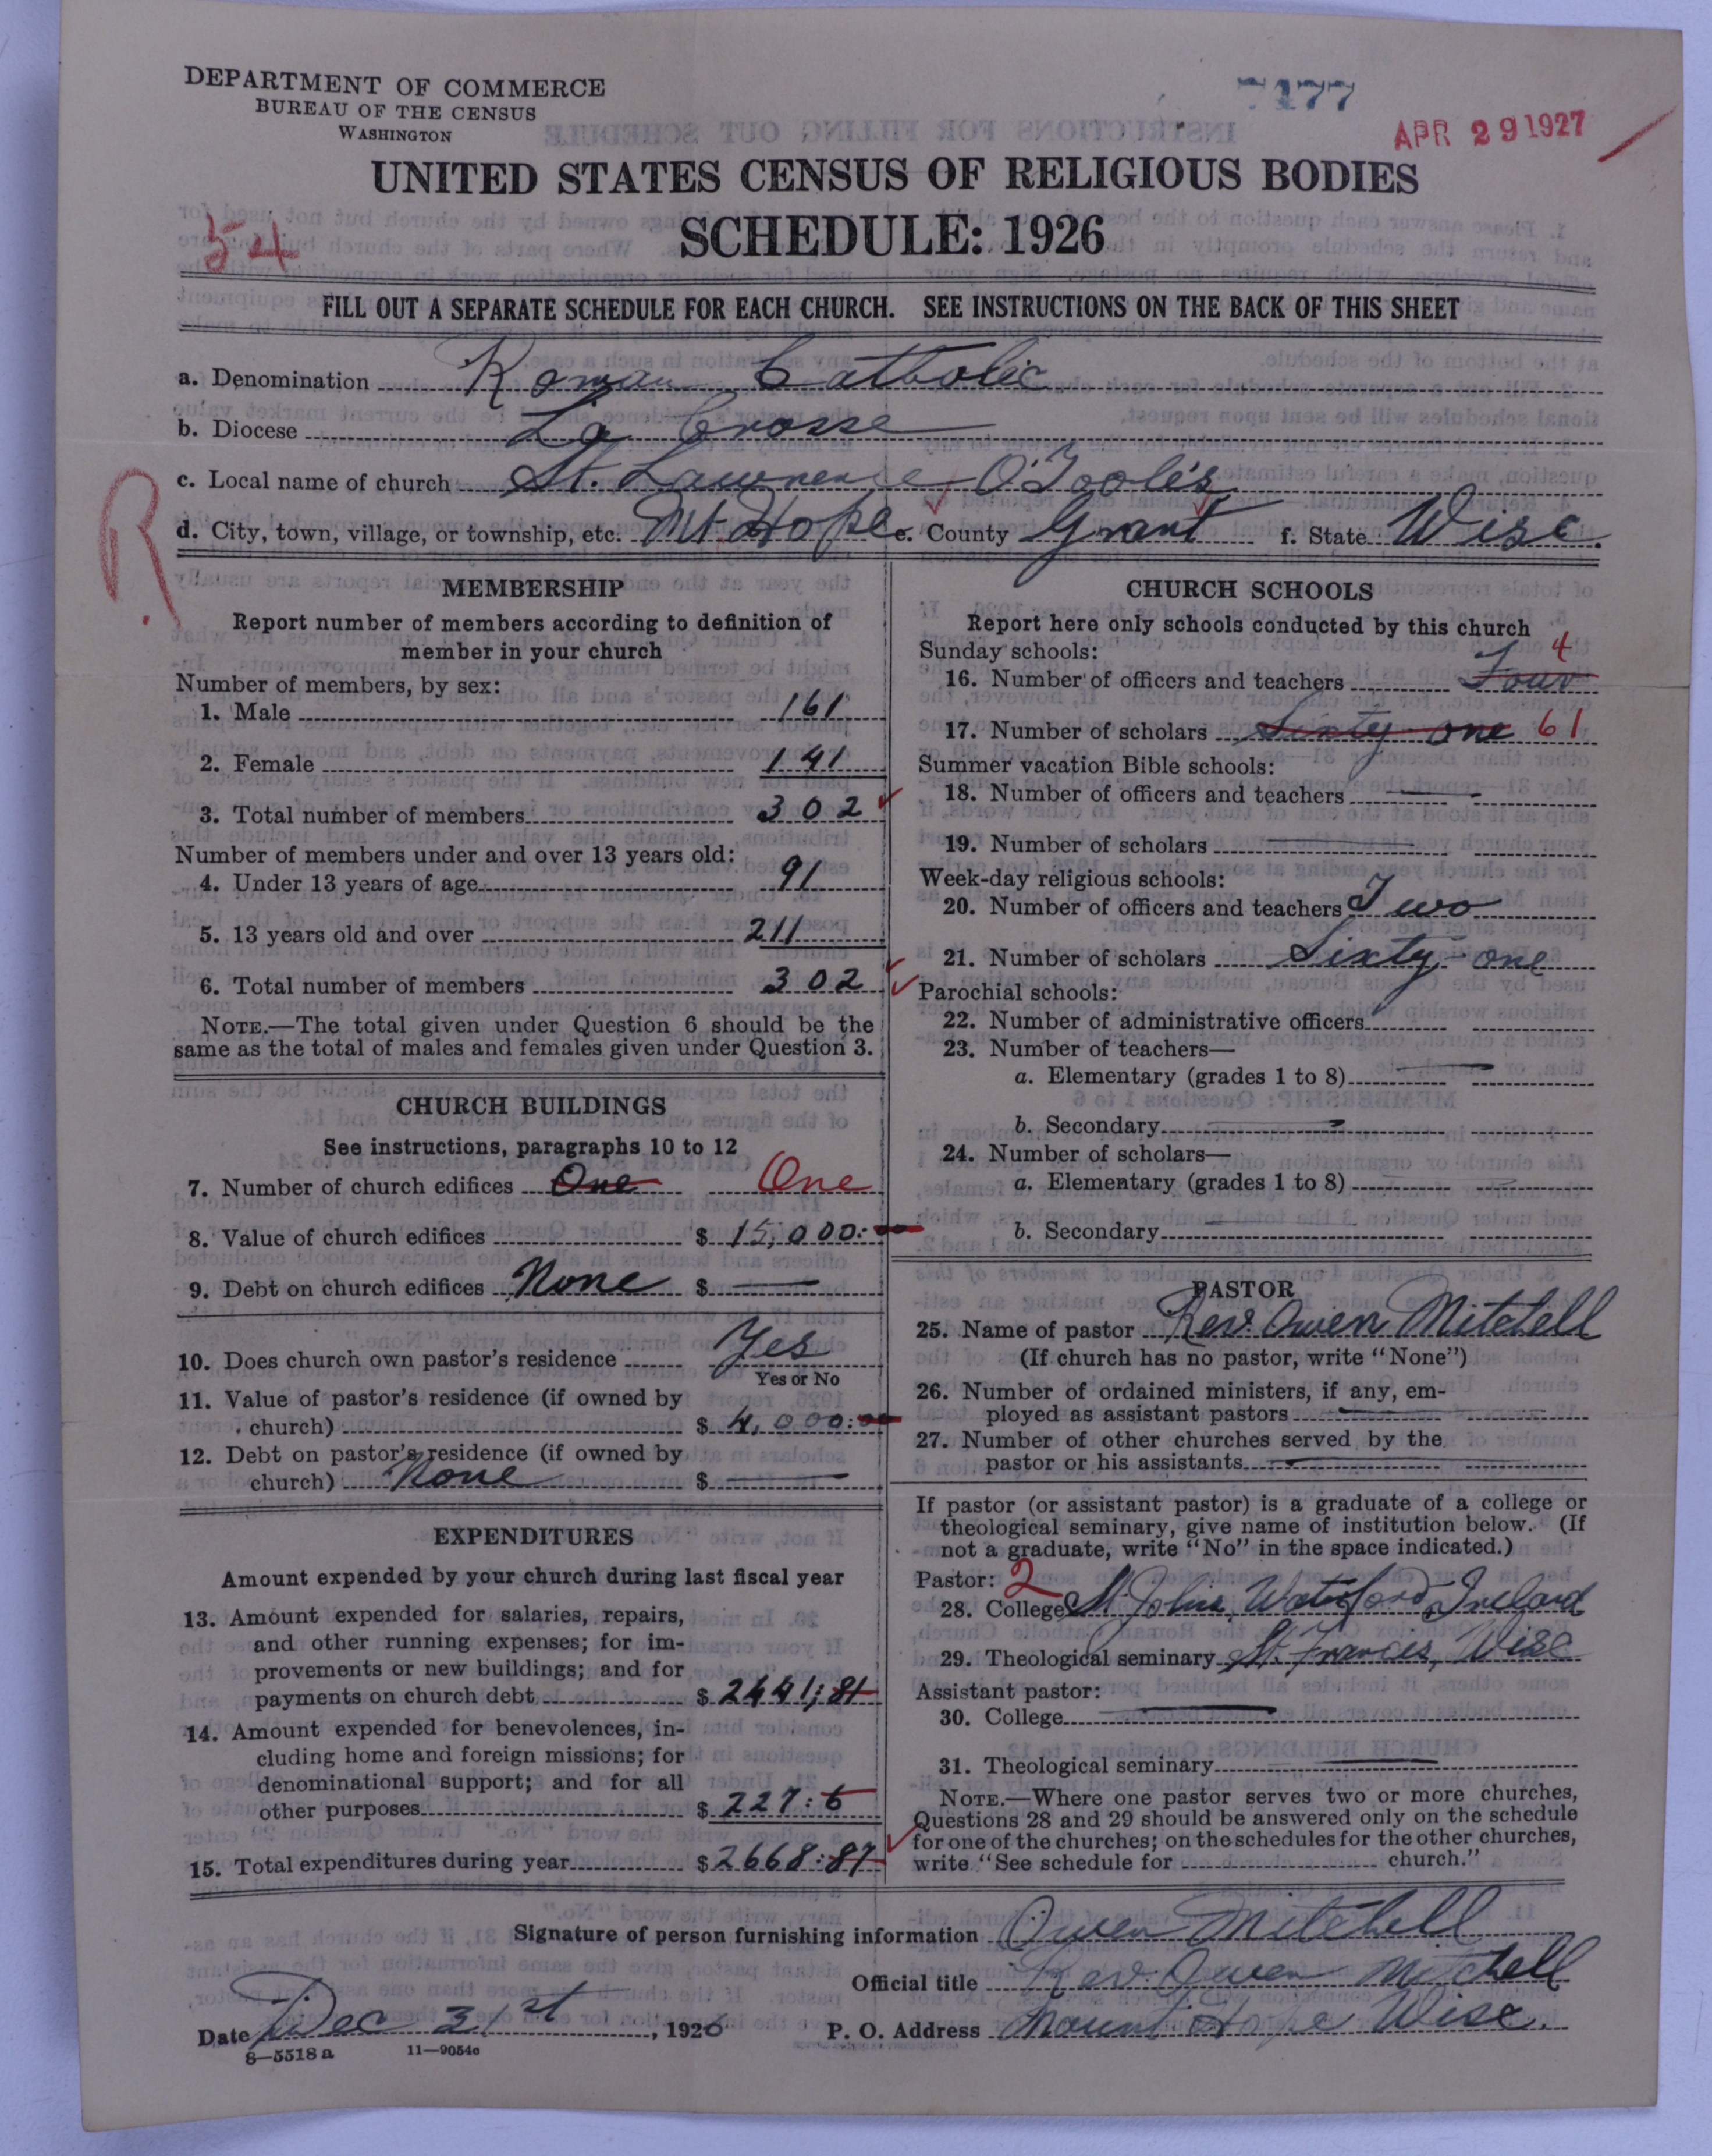 DEPARTMENT OF COMMERCE
BUREAU OF THE CENSUS
WASHINGTON
7477
APR 29 1927
UNITED STATES CENSUS OF RELIGIOUS BODIES
SCHEDULE: 1926
54
FILL OUT A SEPARATE SCHEDULE FOR EACH CHURCH. SEE INSTRUCTIONS ON THE BACK OF THIS SHEET
a. Denomination Roman Catholic
b. Diocese La Crosse
c. Local name of church St. Lawrence O'Toole's
d. City, town, village, or township, etc. Mt. Hope e. County Grant f. State Wisc.
R
MEMBERSHIP
Report number of members according to definition of
member in your church
Number of members, by sex:
1. Male 161
2. Female 141
3. Total number of members 302
Number of members under and over 13 years old:
4. Under 13 years of age 91
5. 13 years old and over 211
6. Total number of members 302
NOTE.—The total given under Question 6 should be the
same as the total of males and females given under Question 3.
CHURCH BUILDINGS
See instructions, paragraphs 10 to 12
7. Number of church edifices One One
8. Value of church edifices $ 15,000:00
9. Debt on church edifices None $ —
10. Does church own pastor's residence Yes
Yes or No
11. Value of pastor's residence (if owned by
church) $ 4,000:00
12. Debt on pastor's residence (if owned by
church) None $ —
EXPENDITURES
Amount expended by your church during last fiscal year
13. Amount expended for salaries, repairs,
and other running expenses; for im-
provements or new buildings; and for
payments on church debt $ 2441:81
14. Amount expended for benevolences, in-
cluding home and foreign missions; for
denominational support; and for all
other purposes $ 227:6
15. Total expenditures during year $ 2668:87
CHURCH SCHOOLS
Report here only schools conducted by this church
Sunday schools:
16. Number of officers and teachers Four 4
17. Number of scholars Sixty-one 61
Summer vacation Bible schools:
18. Number of officers and teachers —
19. Number of scholars —
Week-day religious schools:
20. Number of officers and teachers Two
21. Number of scholars Sixty-one
Parochial schools:
22. Number of administrative officers
23. Number of teachers—
a. Elementary (grades 1 to 8) —
b. Secondary —
24. Number of scholars—
a. Elementary (grades 1 to 8) —
b. Secondary —
PASTOR
25. Name of pastor Rev. Owen Mitchell
(If church has no pastor, write "None")
26. Number of ordained ministers, if any, em-
ployed as assistant pastors —
27. Number of other churches served by the
pastor or his assistants —
If pastor (or assistant pastor) is a graduate of a college or
theological seminary, give name of institution below. (If
not a graduate, write "No" in the space indicated.)
Pastor: 2
28. College St Johns, Waterford, Ireland
29. Theological seminary St. Francis, Wisc
Assistant pastor:
30. College —
31. Theological seminary —
NOTE.—Where one pastor serves two or more churches,
Questions 28 and 29 should be answered only on the schedule
for one of the churches; on the schedules for the other churches,
write "See schedule for church."
Signature of person furnishing information Owen Mitchell
Official title Rev. Owen Mitchell
Date Dec 31st, 1926 P. O. Address Mount Hope Wisc.
8—5518 a 11—9054c